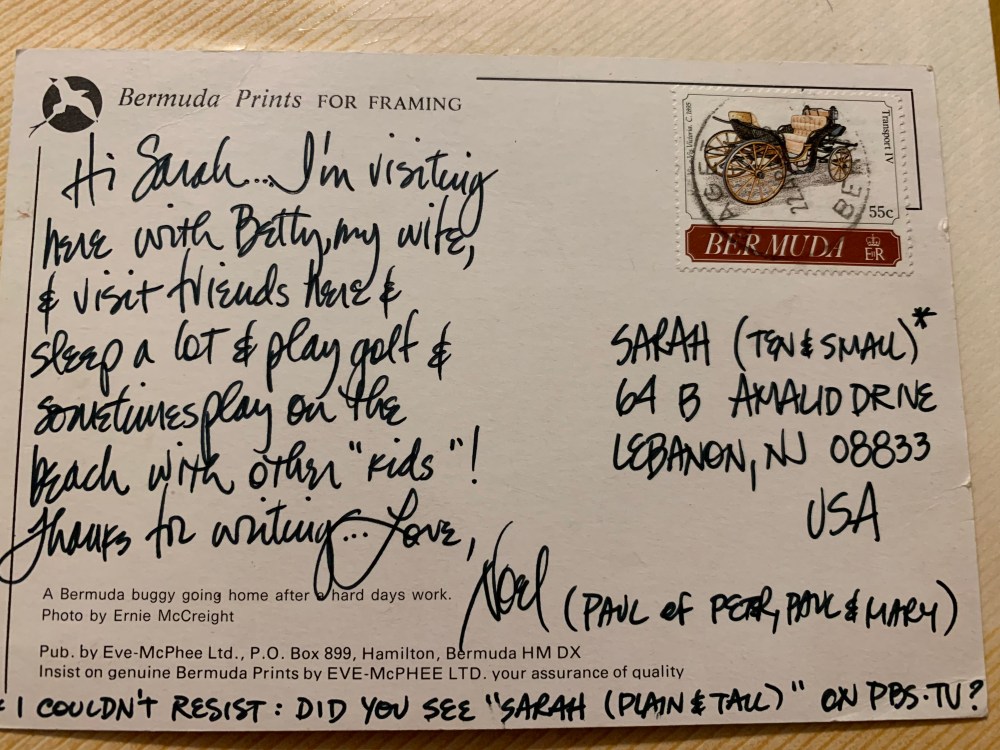 Bermuda Prints FOR FRAMING
Hi Sarah... I'm visiting
here with Betty, my wife,
& visit friends here &
sleep a lot & play golf &
sometimes play on the
beach with other "kids"!
Thanks for writing... Love,
Noel (PAUL of PETER, PAUL & MARY)
A Bermuda buggy going home after a hard days work.
Photo by Ernie McCreight
Pub. by Eve-McPhee Ltd., P.O. Box 899, Hamilton, Bermuda HM DX
Insist on genuine Bermuda Prints by EVE-McPHEE LTD. your assurance of quality
* I COULDN'T RESIST: DID YOU SEE "SARAH (PLAIN & TALL)" ON PBS-TV?
Victoria. C. 1895
Transport IV
55c
BERMUDA
EIIR
SARAH (TEN & SMALL)*
64 B AMALID DRIVE
LEBANON, NJ 08833
USA